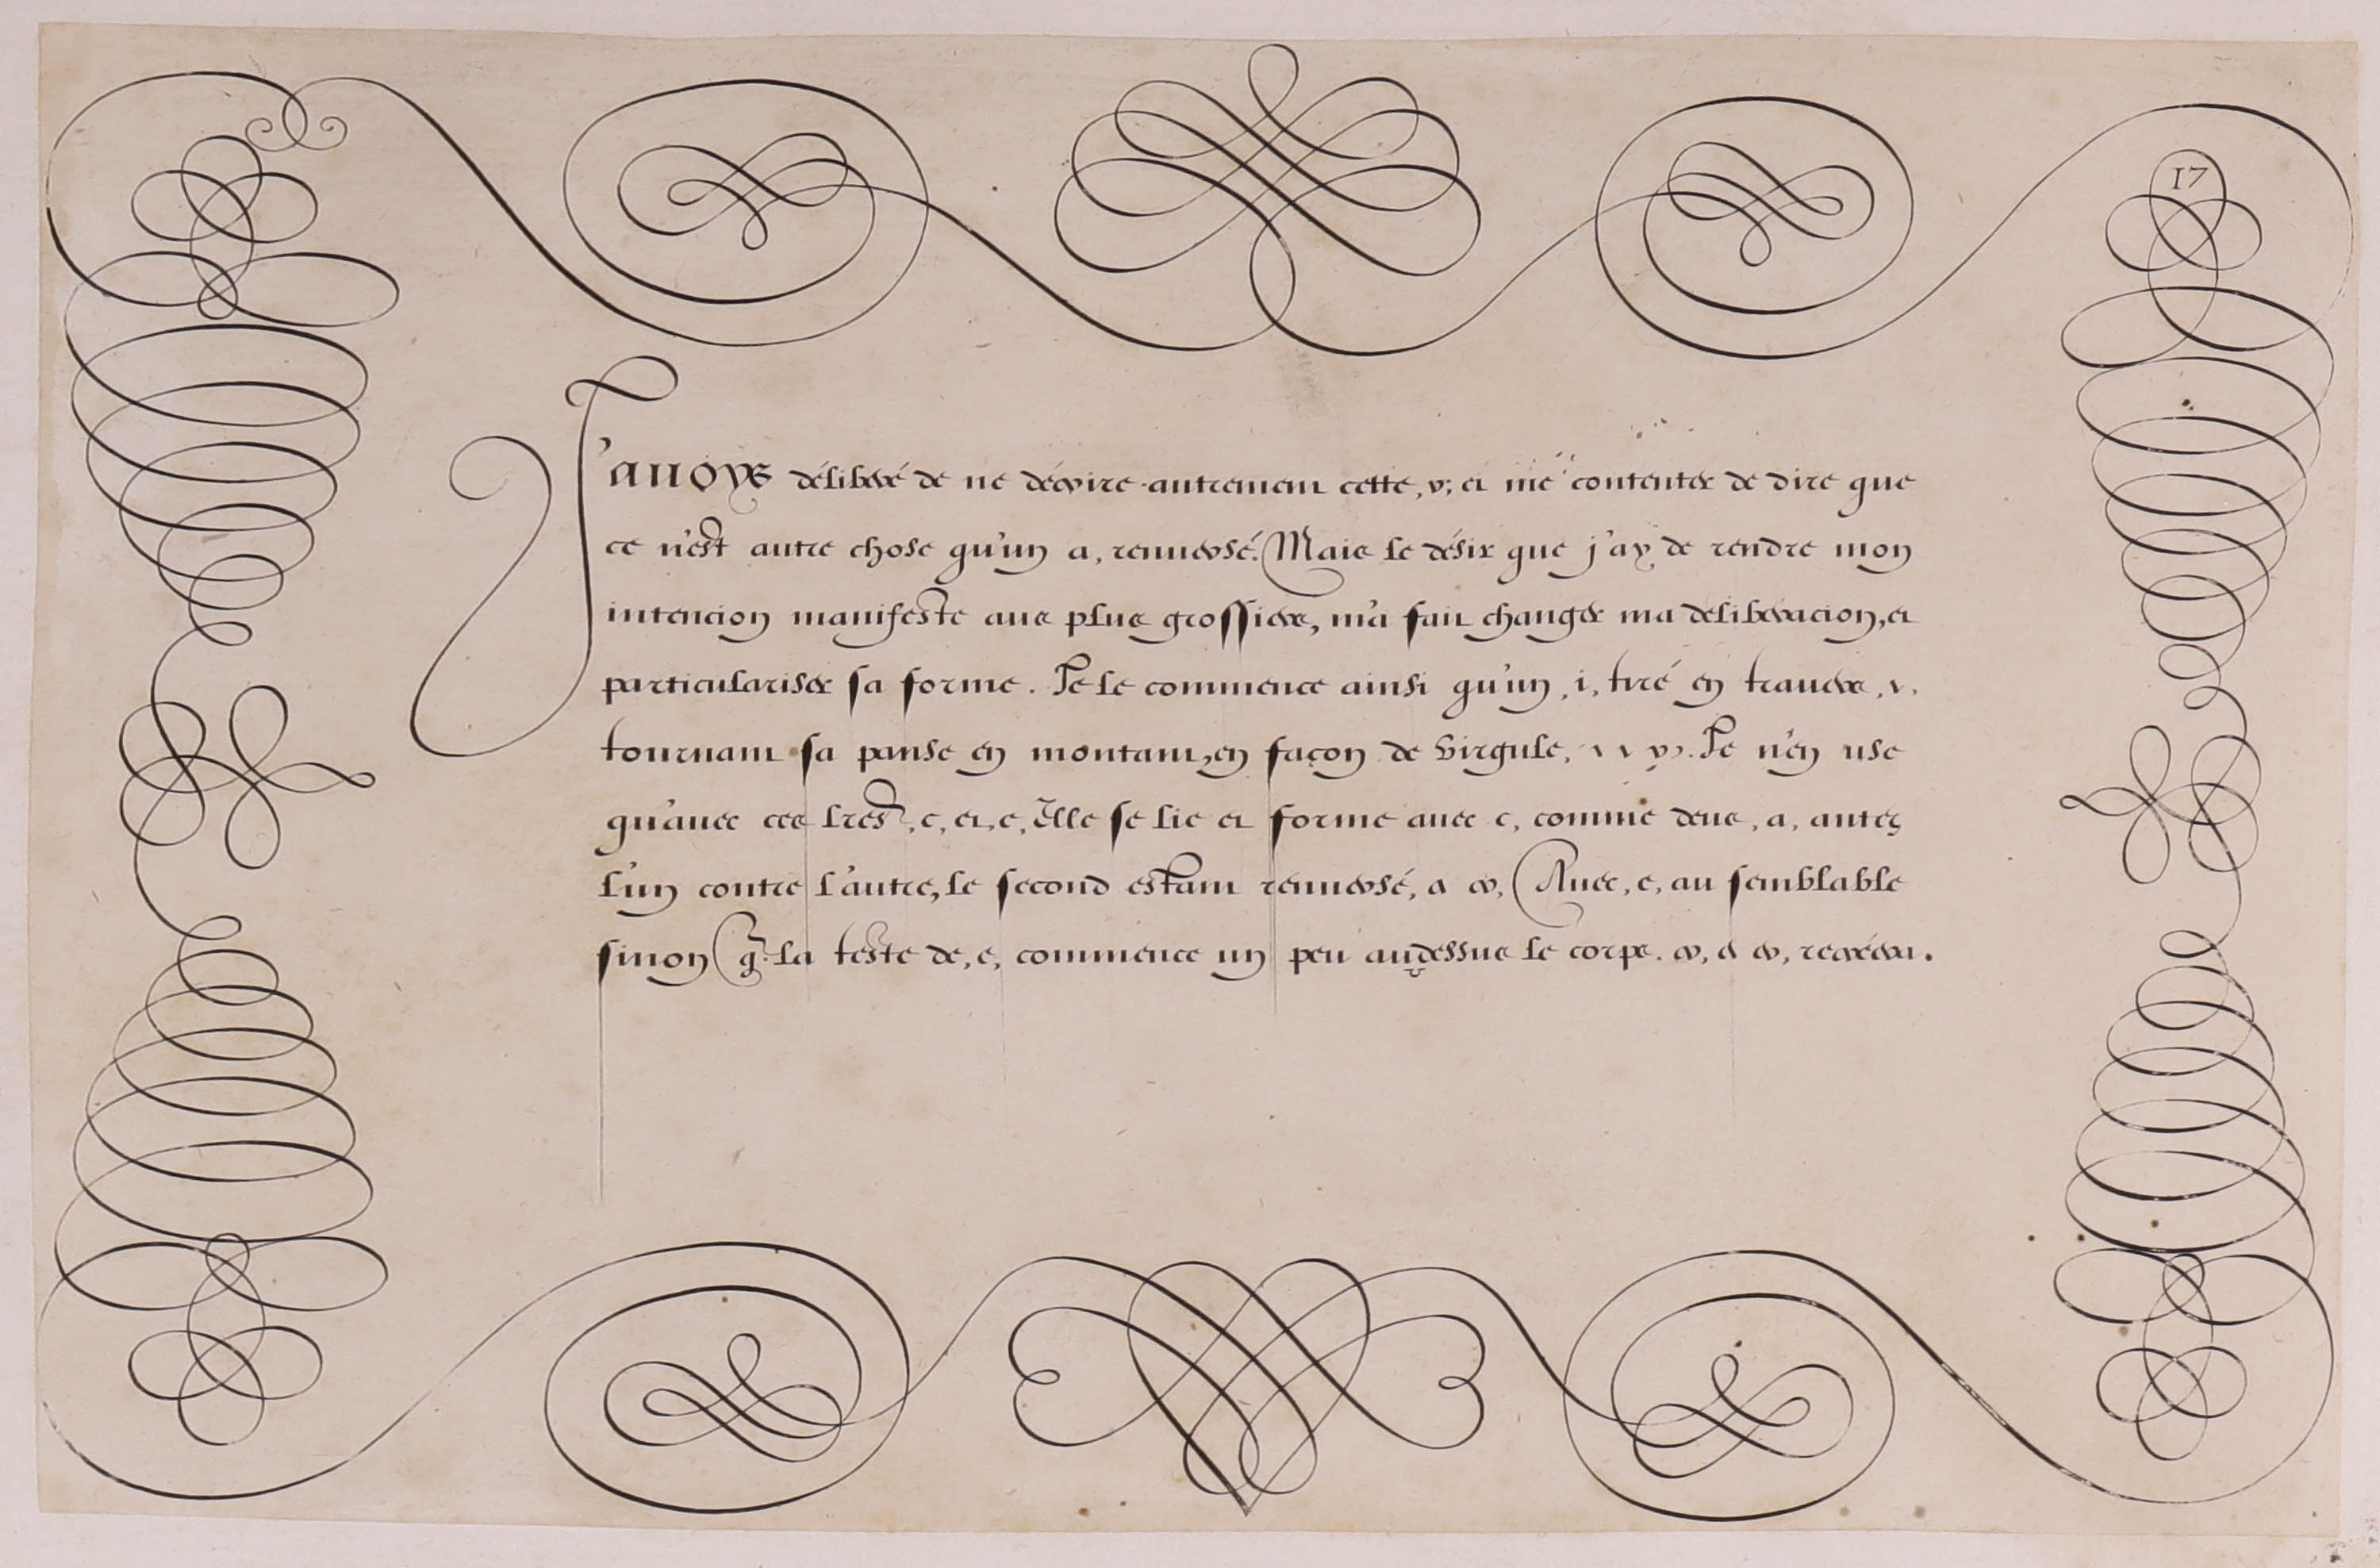 17
J'auoys délibéré de ne décrire autrement cette, v, et me contenter de dire que
ce n'est autre chose qu'un a, renuersé. Mais le désir que j'ay de rendre mon
intencion manifeste aus plus grossiers, m'a fait changer ma deliberacion, et
particulariser sa forme. Je le commence ainsi qu'un, i, tiré en trauers, ı,
tournant sa panse en montant, en façon de virgule, ı ı v. Je n'en use
qu'auec ces lres, c, et, e, Elle se lie et forme auec c, comme deus, a, antez
l'un contre l'autre, le second estant renuersé, a cr, Auec, e, au semblable
sinon q. la teste de, e, commence un peu audessus le corps. cr, a er,